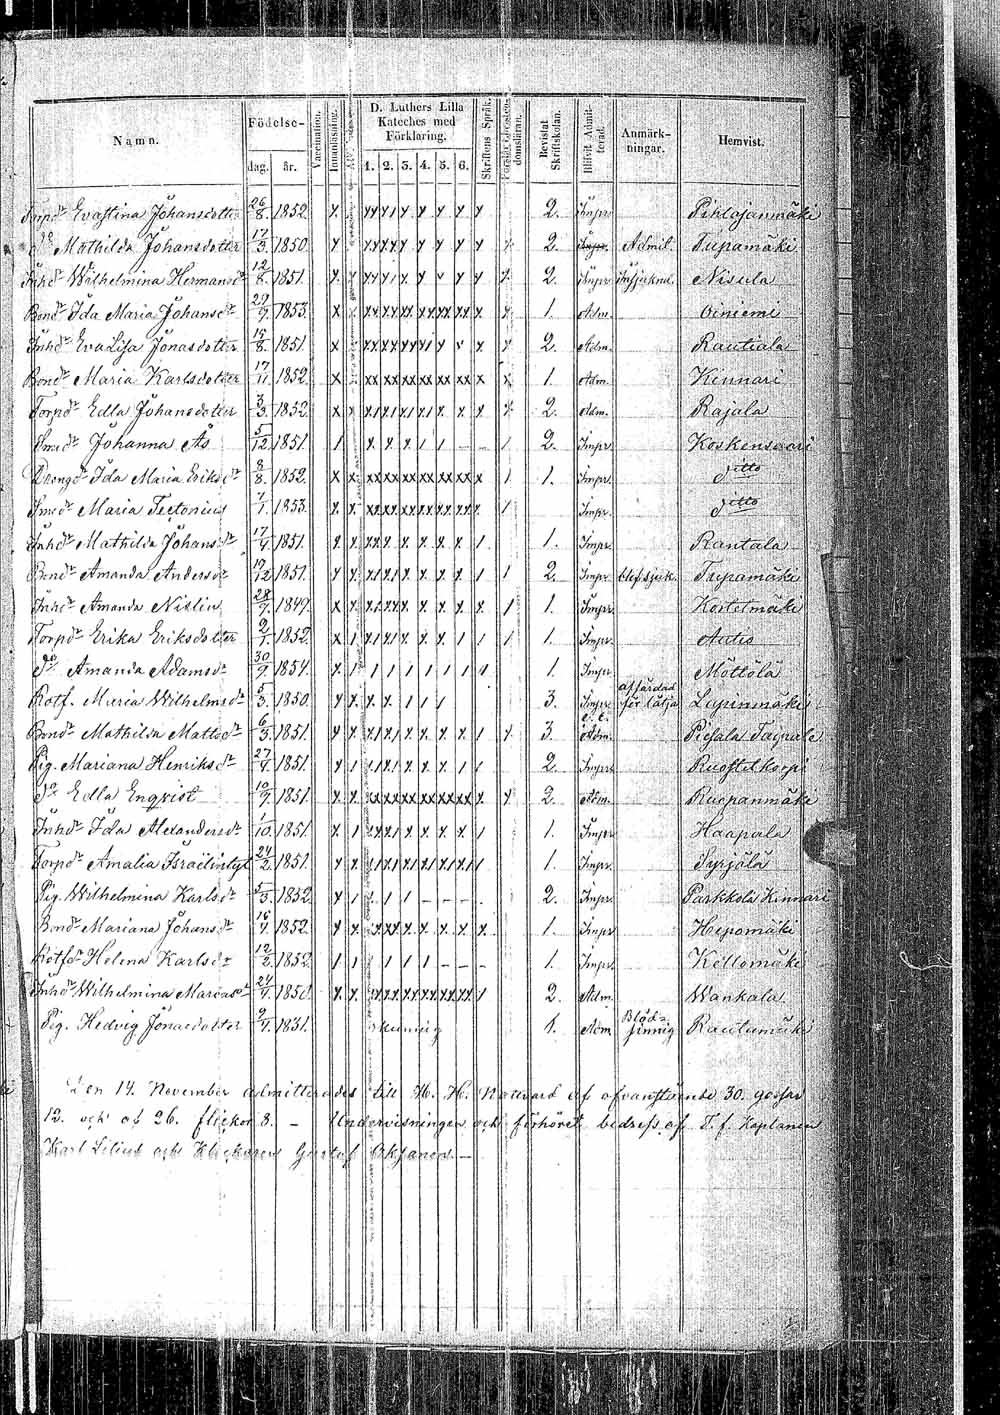 Namn. Födelse- dag. år. Vaccination. Innanläsning. D. Luthers Lilla Kateches med Förklaring. 1. 2. 3. 4. 5. 6. Skriftens Språk. Bevistat Skriftskolan. Blifvit Admitterad. Anmärkningar. Hemvist.
Torpdr Evastina Johansdotter 26/8. 1852. 2. Impr. Pihlajanmäki
do Mathilda Johansdotter 17/3. 1850. 2. Admit. Tupamäki
Inhdr Wilhelmina Hermansdr 12/8. 1851. 2. Impr. Nisula
Bonddr Ida Maria Johansdr 29/9. 1853. 1. Adm. Oiniemi
Inhdr Eva Lisa Jonasdotter 15/8. 1851. 2. Adm. Rautiala
Bonddr Maria Karlsdotter 17/11. 1852. 1. Adm. Kinnari
Torpdr Edla Johansdotter 3/3. 1852. 2. Adm. Rajala
Smeddr Johanna Ås 5/12. 1851. 2. Impr. Koskensaari
Drengdr Ida Maria Eriksdr 8/8. 1852. 1. Impr. ditto
Smeddr Maria Tectonius 7/1. 1853. Impr. ditto
Inhdr Mathilda Johansdr 17/4. 1851. 1. Impr. Rantala
Bonddr Amanda Andersdr 19/12. 1851. 2. Impr. Tupamäki
Inhdr Amanda Nislin 28/7. 1849. 1. Impr. Kortetmäki
Torpdr Erika Eriksdotter 2/1. 1852. 1. Impr. Autio
do Amanda Adamsdr 30/9. 1854. 1. Impr. Möttölä
Rotf. Maria Wilhelmsdr 5/3. 1850. 3. Impr. Lapinmäki
Bonddr Mathilda Mattsdr 6/3. 1851. 3. Adm. Piesala Taipale
Pig. Mariana Henriksdr 27/4. 1851. 2. Impr.
do Edla Enqvist 10/9. 1851. 2. Adm. Ruopanmäki
Inhdr Ida Alexandersdr 1/10. 1851. 1. Impr. Haapala
Torpdr Amalia Israelintyt 24/2. 1851. 1. Impr. Syrjälä
Pig. Wilhelmina Karlsdr 5/3. 1852. 2. Impr. Parkkola Kinnari
Bonddr Mariana Johansdr 16/4. 1852. 1. Impr. Hepomäki
Rotfdr Helena Karlsdr 12/2. 1852. 1. Impr. Kellomäki
Inhdr Wilhelmina Mariasdr 24/4. 1850. 2. Adm. Wankala
Pig. Hedvig Jonasdotter 9/4. 1831. okunnig 1. Adm. Blödsinnig Rautumäki
Den 14. November admitterades till H. H. Nattvard af ofvanstående 30. gossar
12. och af 26. flickor 8. – Undervisningen och förhöret bedrefs af T. f. Kaplanen
Karl Lilius och Klockaren Gustaf Oksanen –